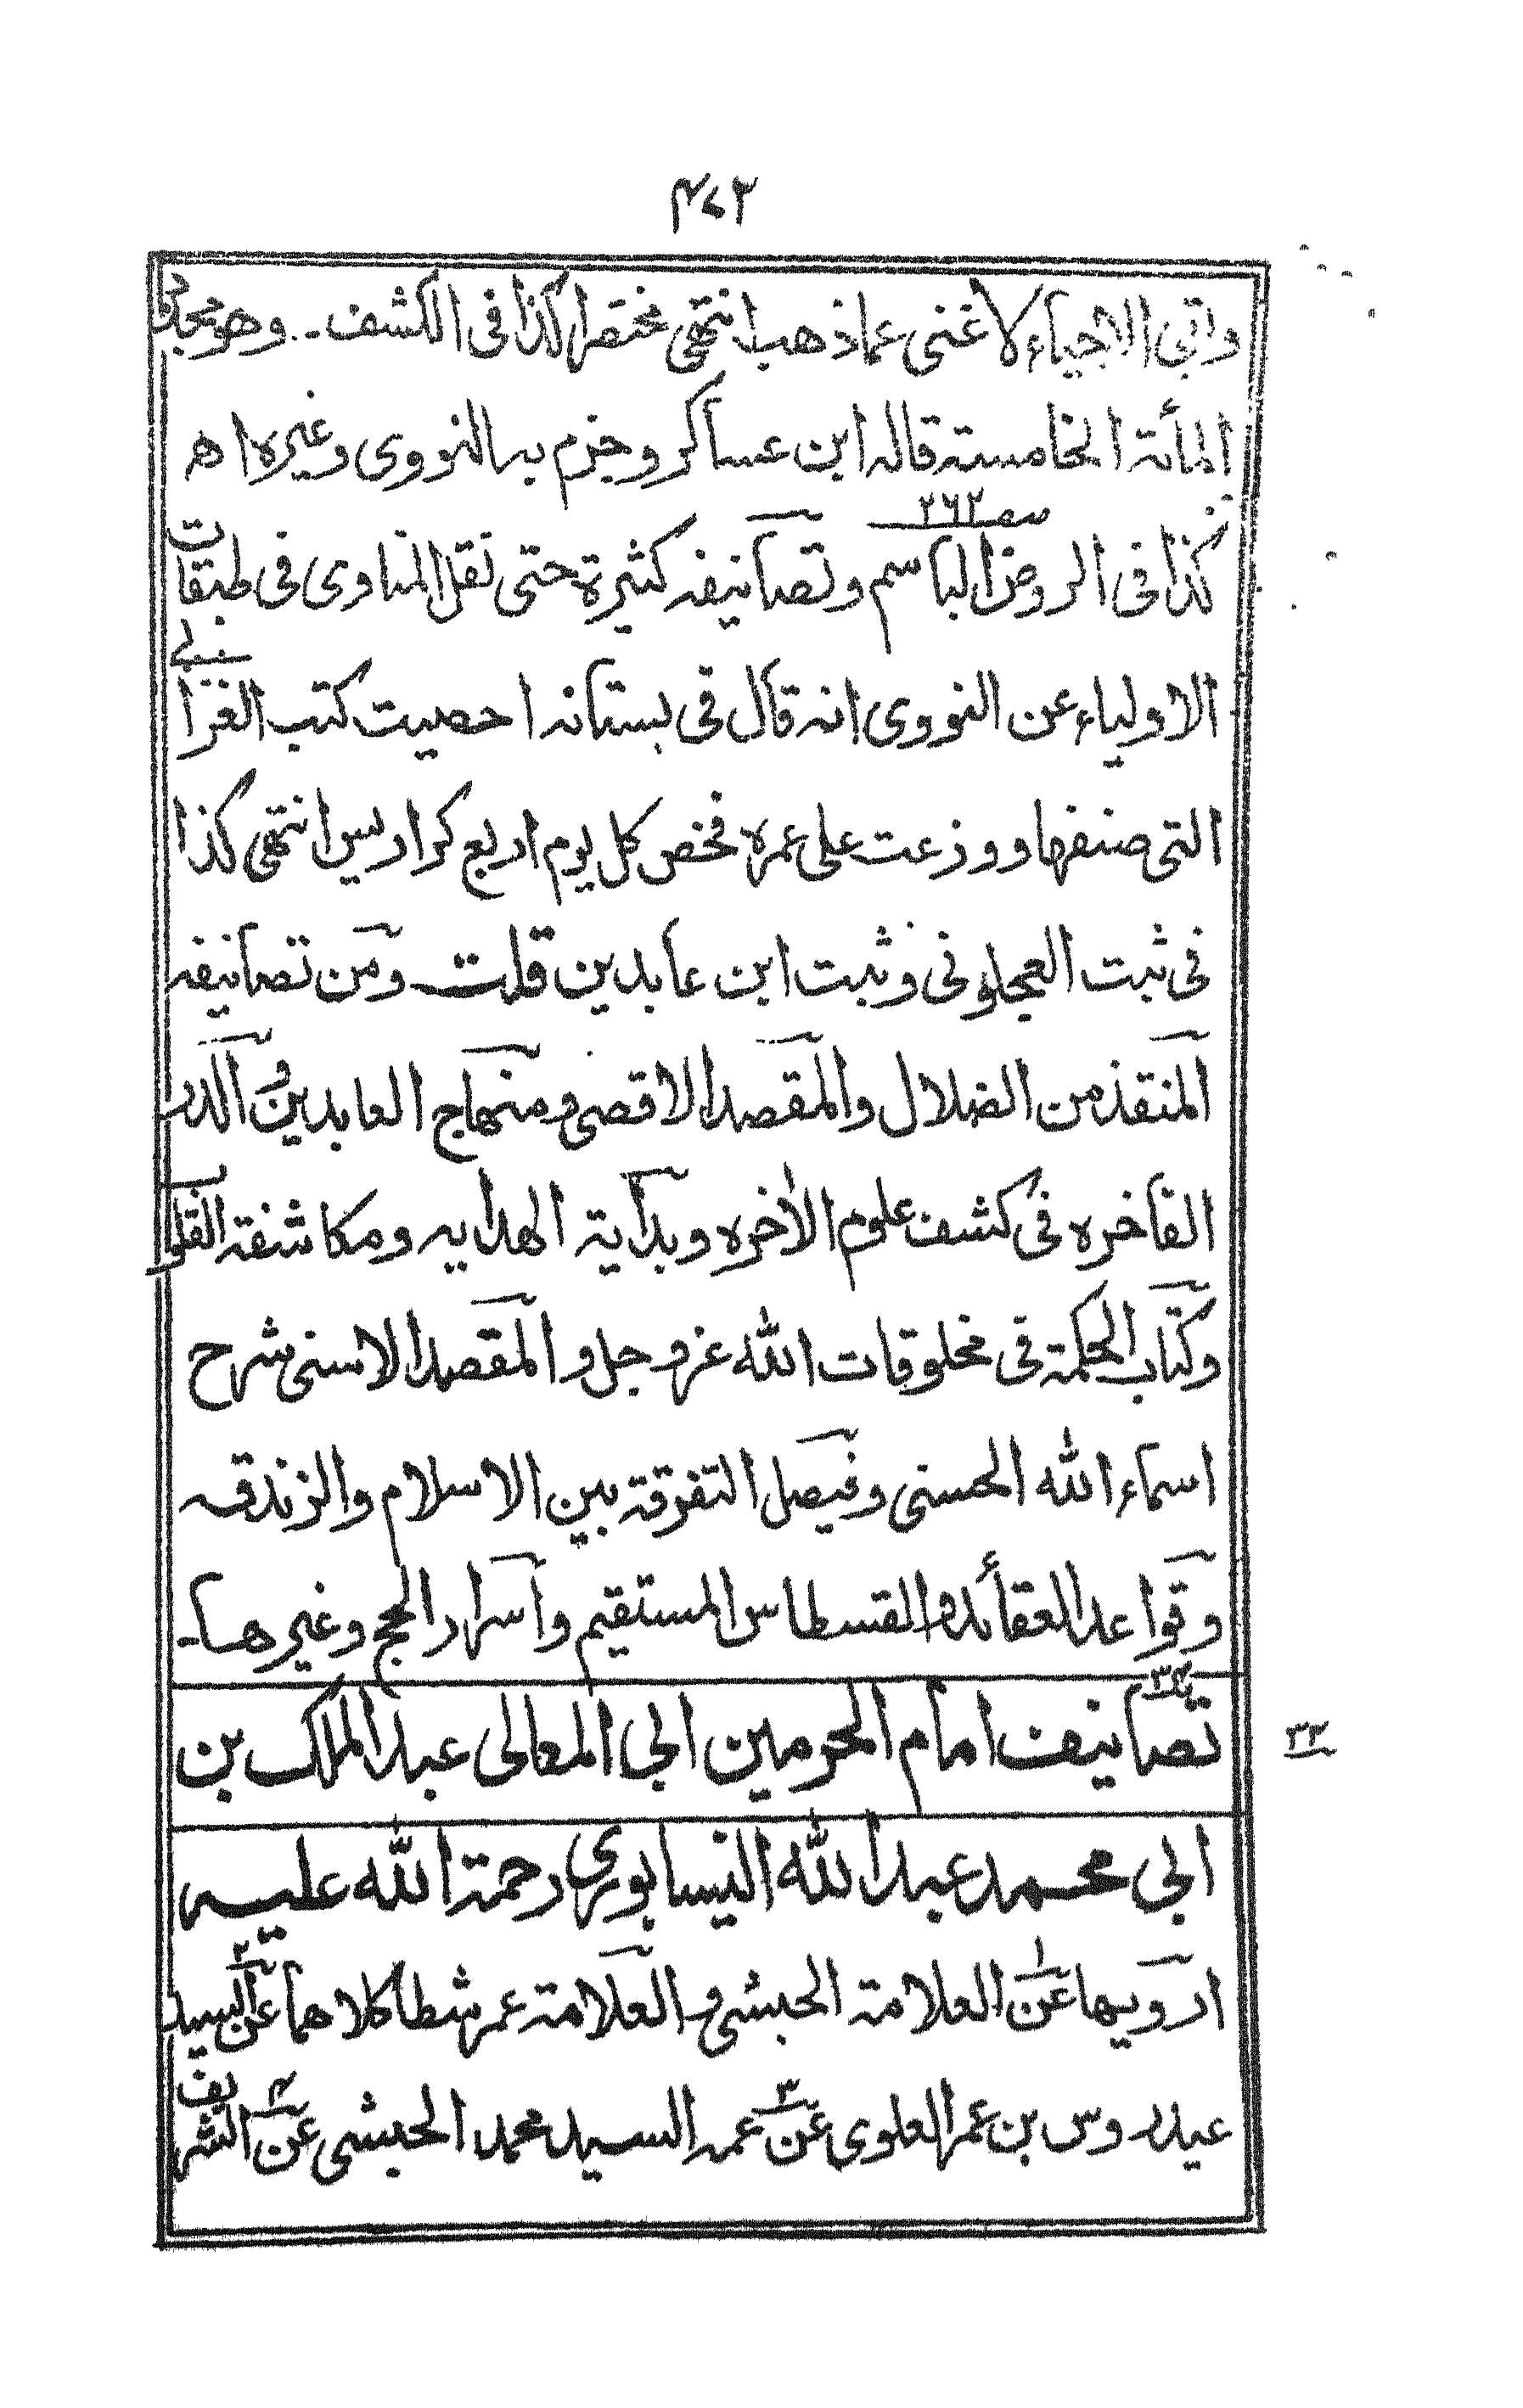 ٤٧٢
وابقى الاحياء لاغنى عما ذهب انتهى مختصرا كذا فى الكشف - وهو مجدد
المأئة الخامسته قاله ابن عساكر وجزم به النووى وغيره اھ
صـ ٢٦٢
كذا فى الروض الباسم وتصانيفه كثيرة حتى نقل المناوى فى طبقات
الاولياء عن النووى انه قال فى بستانه احصيت كتب الغزالى
التى صنفها ووزعت على عمره فخص كل يوم اربع كراريس انتهى كذا
فى ثبت العجلونى وثبت ابن عابدين قلت ومن تصانيفه
المنقذ من الضلال والمقصد الاقصى ومنهاج العابدين و الدر
الفاخره فى كشف علوم الاخره وبداية الهدايه ومكاشفة القلوب
وكتاب الحكمة فى مخلوقات الله عز وجل و المقصد الاسنى شرح
اسماء الله الحسنى وفيصل التفرقة بين الاسلام والزندقه
وقواعد العقائد والقسطاس المستقيم واسرار الحج وغيرها -
٣٣
تصانيف امام الحرمين ابي المعالى عبد الملك بن
٣٣
ابي محمد عبد الله النيسابورى رحمة الله عليه
ارويها عن ١ العلامة الحبشى و العلامة عمر شطا كلاهما عن ٢ السيد
عيدروس بن عمر العلوى عن ٣ عمه السيد محمد الحبشى عن ٤ الشريف